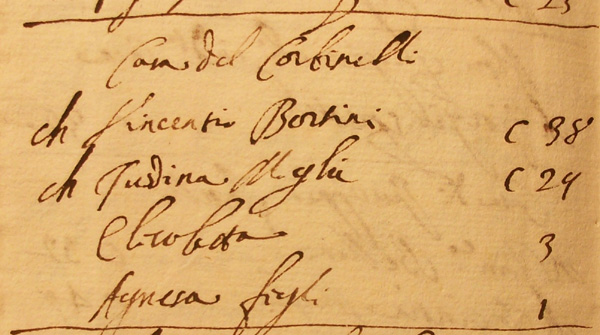 C 25
Casa del Corbinelli
ch Vincentio Bortini C 38
ch Tudina Moglie C 24
Elisabetta 3
Agnesa figli 1